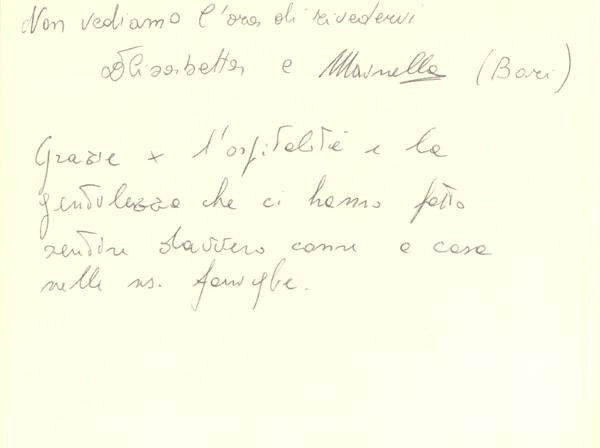 Non vediamo l'ora di rivedervi
Elisabetta e Marinella (Bari)
Grazie x l'ospitalità e la
gentilezza che ci hanno fatto
sentire davvero come a casa
nelle ns. famiglie.